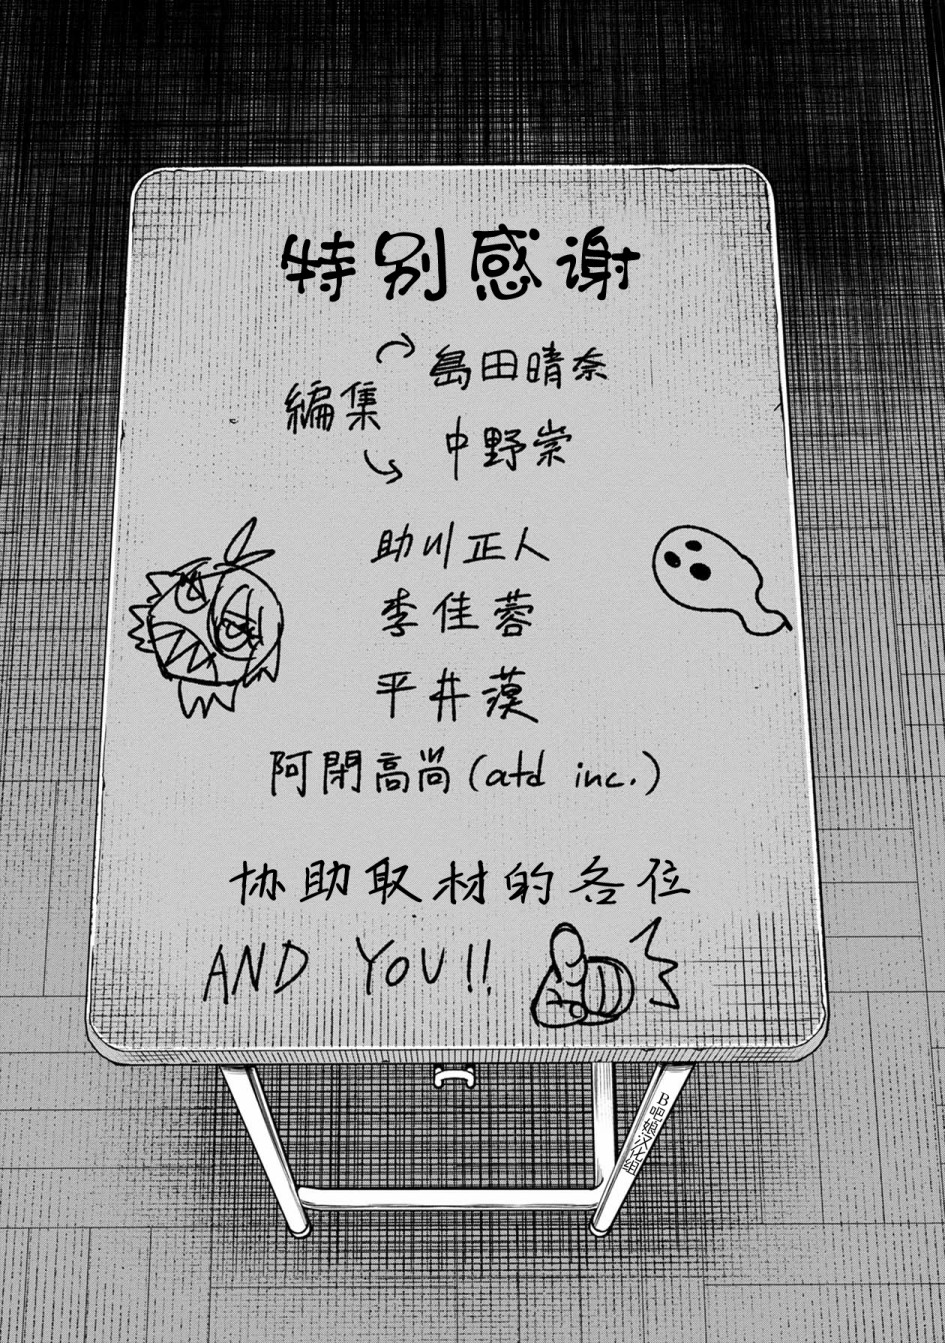 特别感谢
島田晴奈
編集
中野崇
助川正人
李佳蓉
平井漠
阿閉高尚(atd inc.)
协助取材的各位
AND YOU!!
B吧娘汉化组